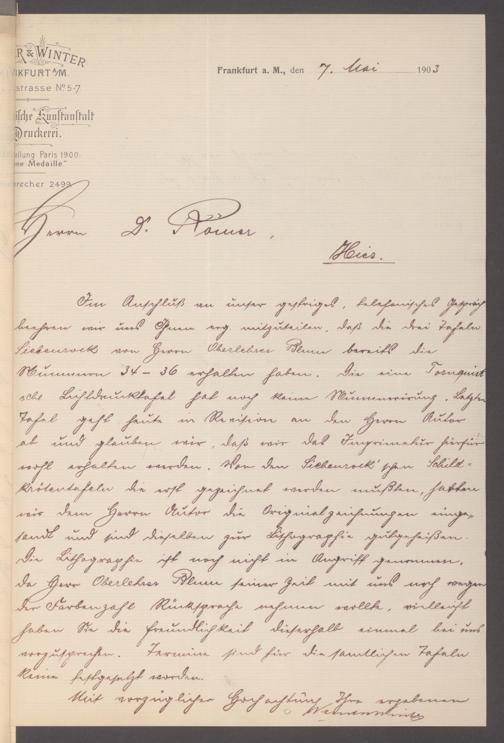 R & WINTER
NKFURT A/M.
strasse No 5-7
ische Kunstanstalt
Druckerei.
ellung Paris 1900:
ne Medaille."
precher 2499
Frankfurt a. M., den 7. Mai 1903
Herrn Dr. Römer,
Hier.
Im Anschluß an unser gestriges, telefonisches Gespräch
beehren wir uns Ihnen erg. mitzuteilen, daß die drei Tafeln
Siebenrock von Herrn Oberlehrer Blum bereits die
Nummern 34 – 36 erhalten haben. Die eine Tornquist
sche Lichtdrucktafel hat noch keine Nummerierung. Letztere
Tafel geht heute in Revision an den Herrn Autor
ab und glauben wir, daß wir das Imprimatur hierfür
wohl erhalten werden. Von den Siebenrock'schen Schild-
krötentafeln die erst gezeichnet werden mußten, hatten
wir dem Herrn Autor die Originalzeichnungen einge-
sandt und sind dieselben zur Lithographie gutgeheißen.
Die Lithographie ist noch nicht in Angriff genommen,
da Herr Oberlehrer Blum seiner Zeit mit uns noch wegen
der Farbenzahl Rücksprache nehmen wollte, vielleicht
haben Sie die Freundlichkeit dieserhalb einmal bei uns
vorzusprechen. Termine sind für die sämtlichen Tafeln
keine festgesetzt worden.
Mit vorzüglicher Hochachtung Ihre ergebenen